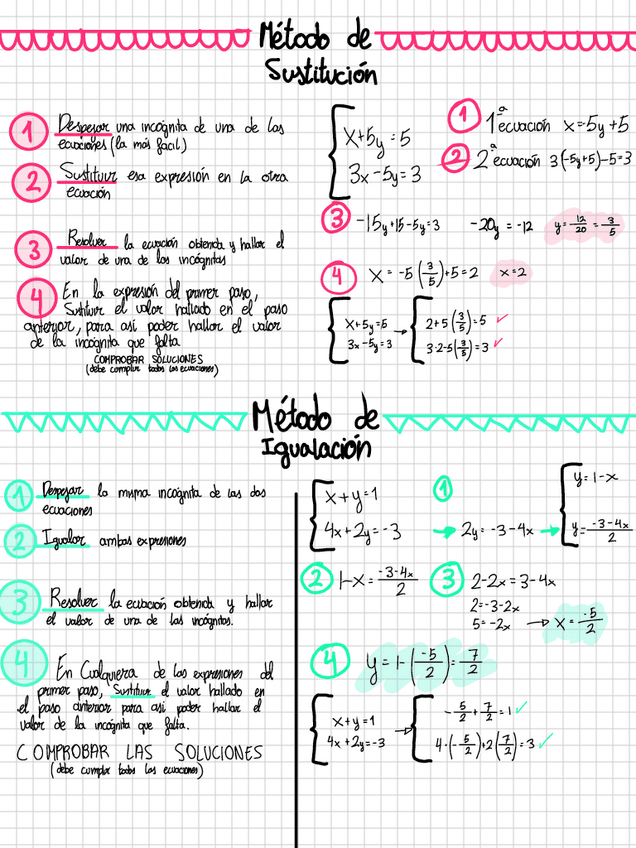 Método de
Sustitución
1 Despejar una incógnita de una de las
ecuaciones (la más fácil)
2 Sustituir esa expresión en la otra
ecuación
3 Resolver la ecuación obtenida y hallar el
valor de una de las incógnitas
4 En la expresión del primer paso,
Sustituir el valor hallado en el paso
anterior, para así poder hallar el valor
de la incógnita que falta
COMPROBAR SOLUCIONES
(debe cumplir todas las ecuaciones)
x+5y=5
3x-5y=3
1 1ª ecuación x=-5y+5
2 2ª ecuación 3(-5y+5)-5=3
3 -15y+15-5y=3 -20y=-12 y=12/20=3/5
4 x=-5(3/5)+5=2 x=2
x+5y=5 → 2+5(3/5)=5 ✓
3x-5y=3 3·2-5(3/5)=3 ✓
Método de
Igualación
1 Despejar la misma incógnita de las dos
ecuaciones
2 Igualar ambas expresiones
3 Resolver la ecuación obtenida y hallar
el valor de una de las incógnitas.
4 En Cualquiera de las expresiones del
primer paso, Sustituir el valor hallado en
el paso anterior para así poder hallar el
valor de la incógnita que falta.
COMPROBAR LAS SOLUCIONES
(debe cumplir todas las ecuaciones)
x+y=1
4x+2y=-3
1 → 2y=-3-4x →
y=1-x
y=-3-4x/2
2 1-x=-3-4x/2
3 2-2x=3-4x
2=-3-2x
5=-2x → x=-5/2
4 y=1-(-5/2)=7/2
x+y=1 → -5/2+7/2=1 ✓
4x+2y=-3 4·(-5/2)+2(7/2)=3 ✓